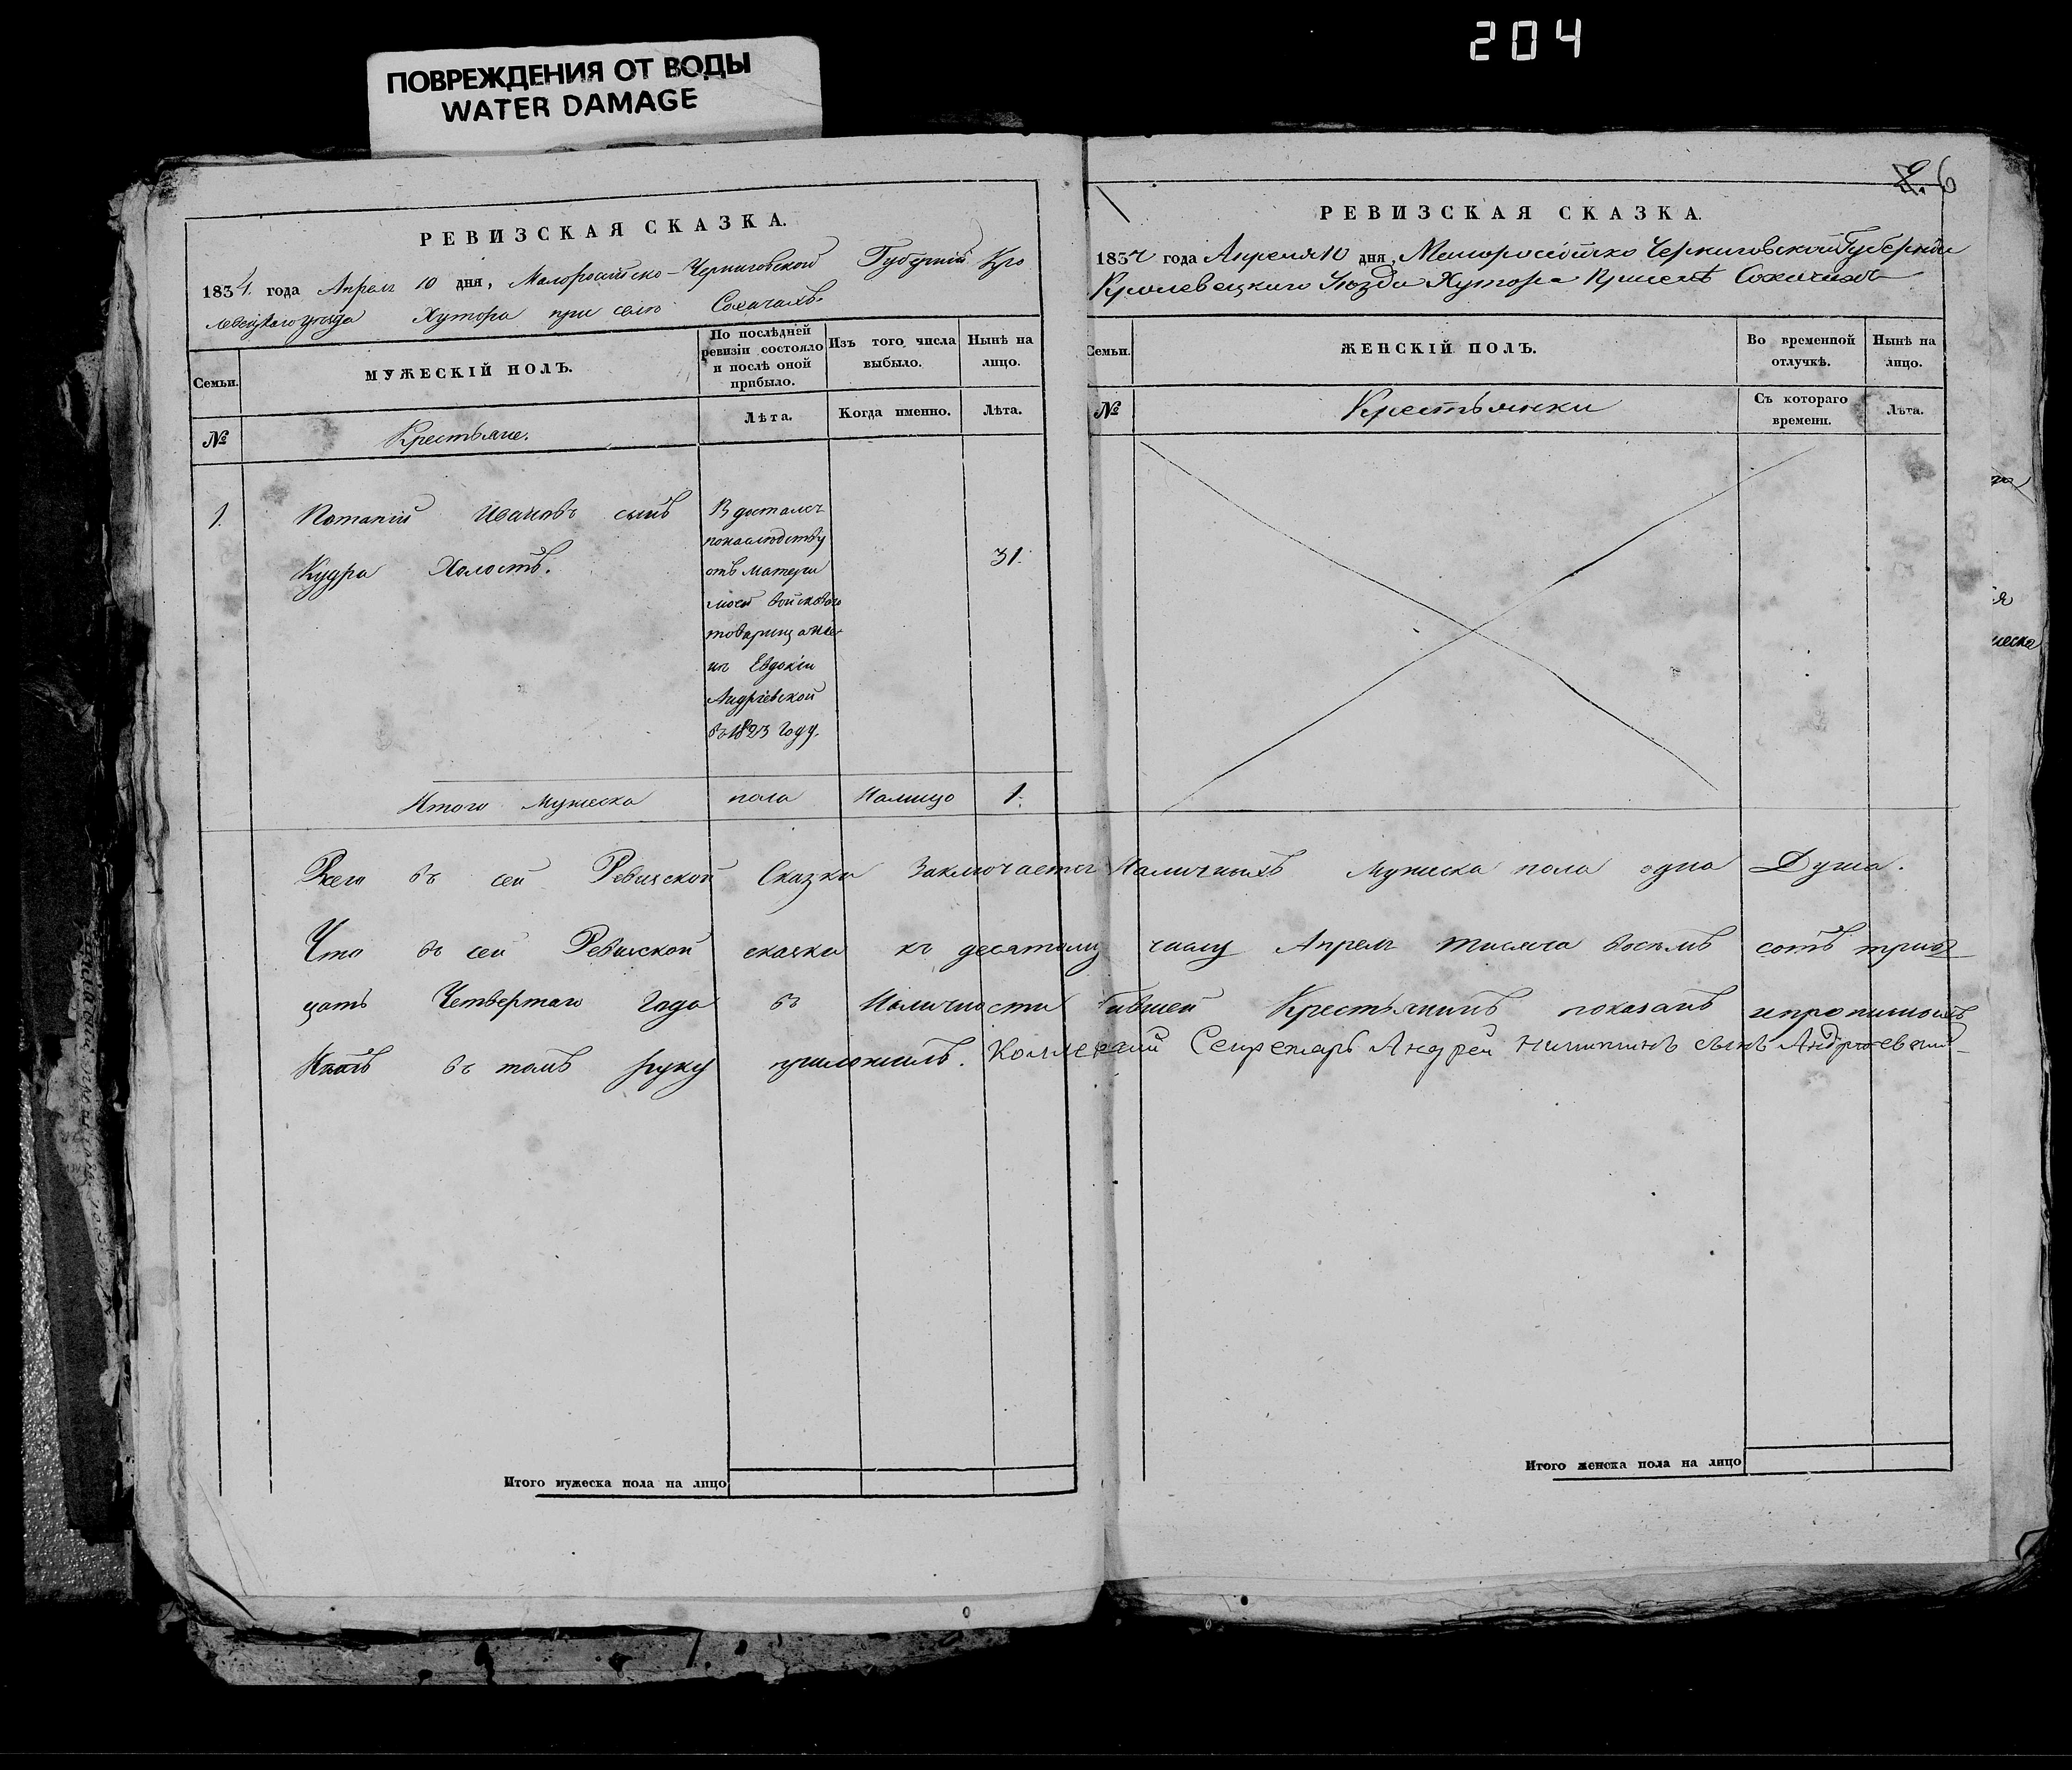 204
ПОВРЕЖДЕНИЯ ОТ ВОДЫ
WATER DAMAGE
РЕВИЗСКАЯ СКАЗКА.
1834. года Апреля 10 дня, Малоросiйско-Черниговской Губернiй Кро
левецкаго уезда Хутора при селе Сохачахъ.
Семьи.
МУЖЕСКIЙ ПОЛЪ.
По послѣдней
ревизiи состояло
и послѣ оной
прибыло.
Изъ того числа
выбыло.
Нынѣ на
лицо.
№
Крестьяне.
Лѣта.
Когда именно.
Лѣта.
1.
Потапiй Ивановъ сынъ
Кудра Холостъ.
В достался
понаследству
отъ матери
моей войсковаго
товарища
Евдокiи
Андрiевской
въ 1823 году.
31.
Итого Мужеска пола Налицо 1.
РЕВИЗСКАЯ СКАЗКА.
6
1834 года Апреля 10 дня, Малоросiйско Черниговской Губернiи
Кролевецкаго Уезда Хутора Приселѣ Сохачахъ
Семьи.
ЖЕНСКIЙ ПОЛЪ.
Во временной
отлучкѣ.
Нынѣ на
лицо.
№
Крестьянки
Съ котораго
времени.
Лѣта.
Всего въ сей Ревизской Сказки Заключается Наличныхъ Мужеска пола одна Душа.
Что въ сей Ревизской сказки къ десятому числу Апреля тисяча восемъ сотъ трид
цать Четвертаго Года въ Наличности бившей Крестьянинъ показанъ
въ томъ руку приложилъ. Коллежский Секретарь Андрей Никитинъ сынъ Андрiевский
Итого мужеска пола на лицо
Итого женска пола на лицо